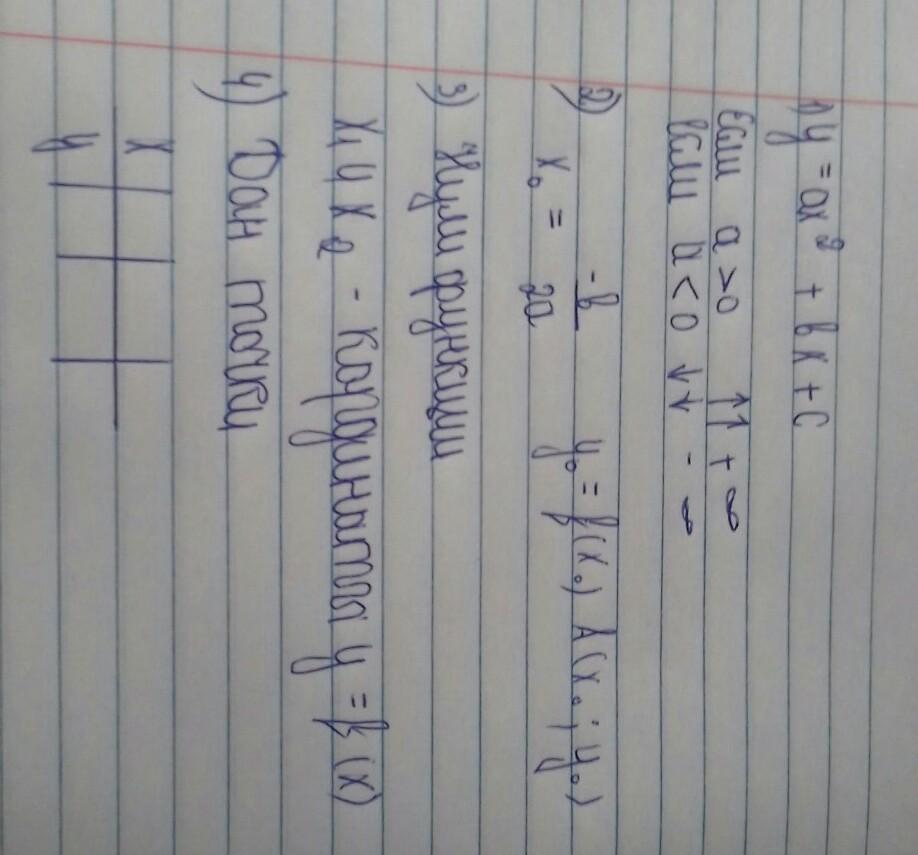 1) y = ax² + bx + c
Если a > 0 ↑↑ + ∞
Если a < 0 ↓↓ - ∞
2) x₀ = -b/2a y₀ = f(x₀) A(x₀; y₀)
3) Нули функции
x₁ и x₂ - кординаты y = f(x)
4) Доп точки
x
y